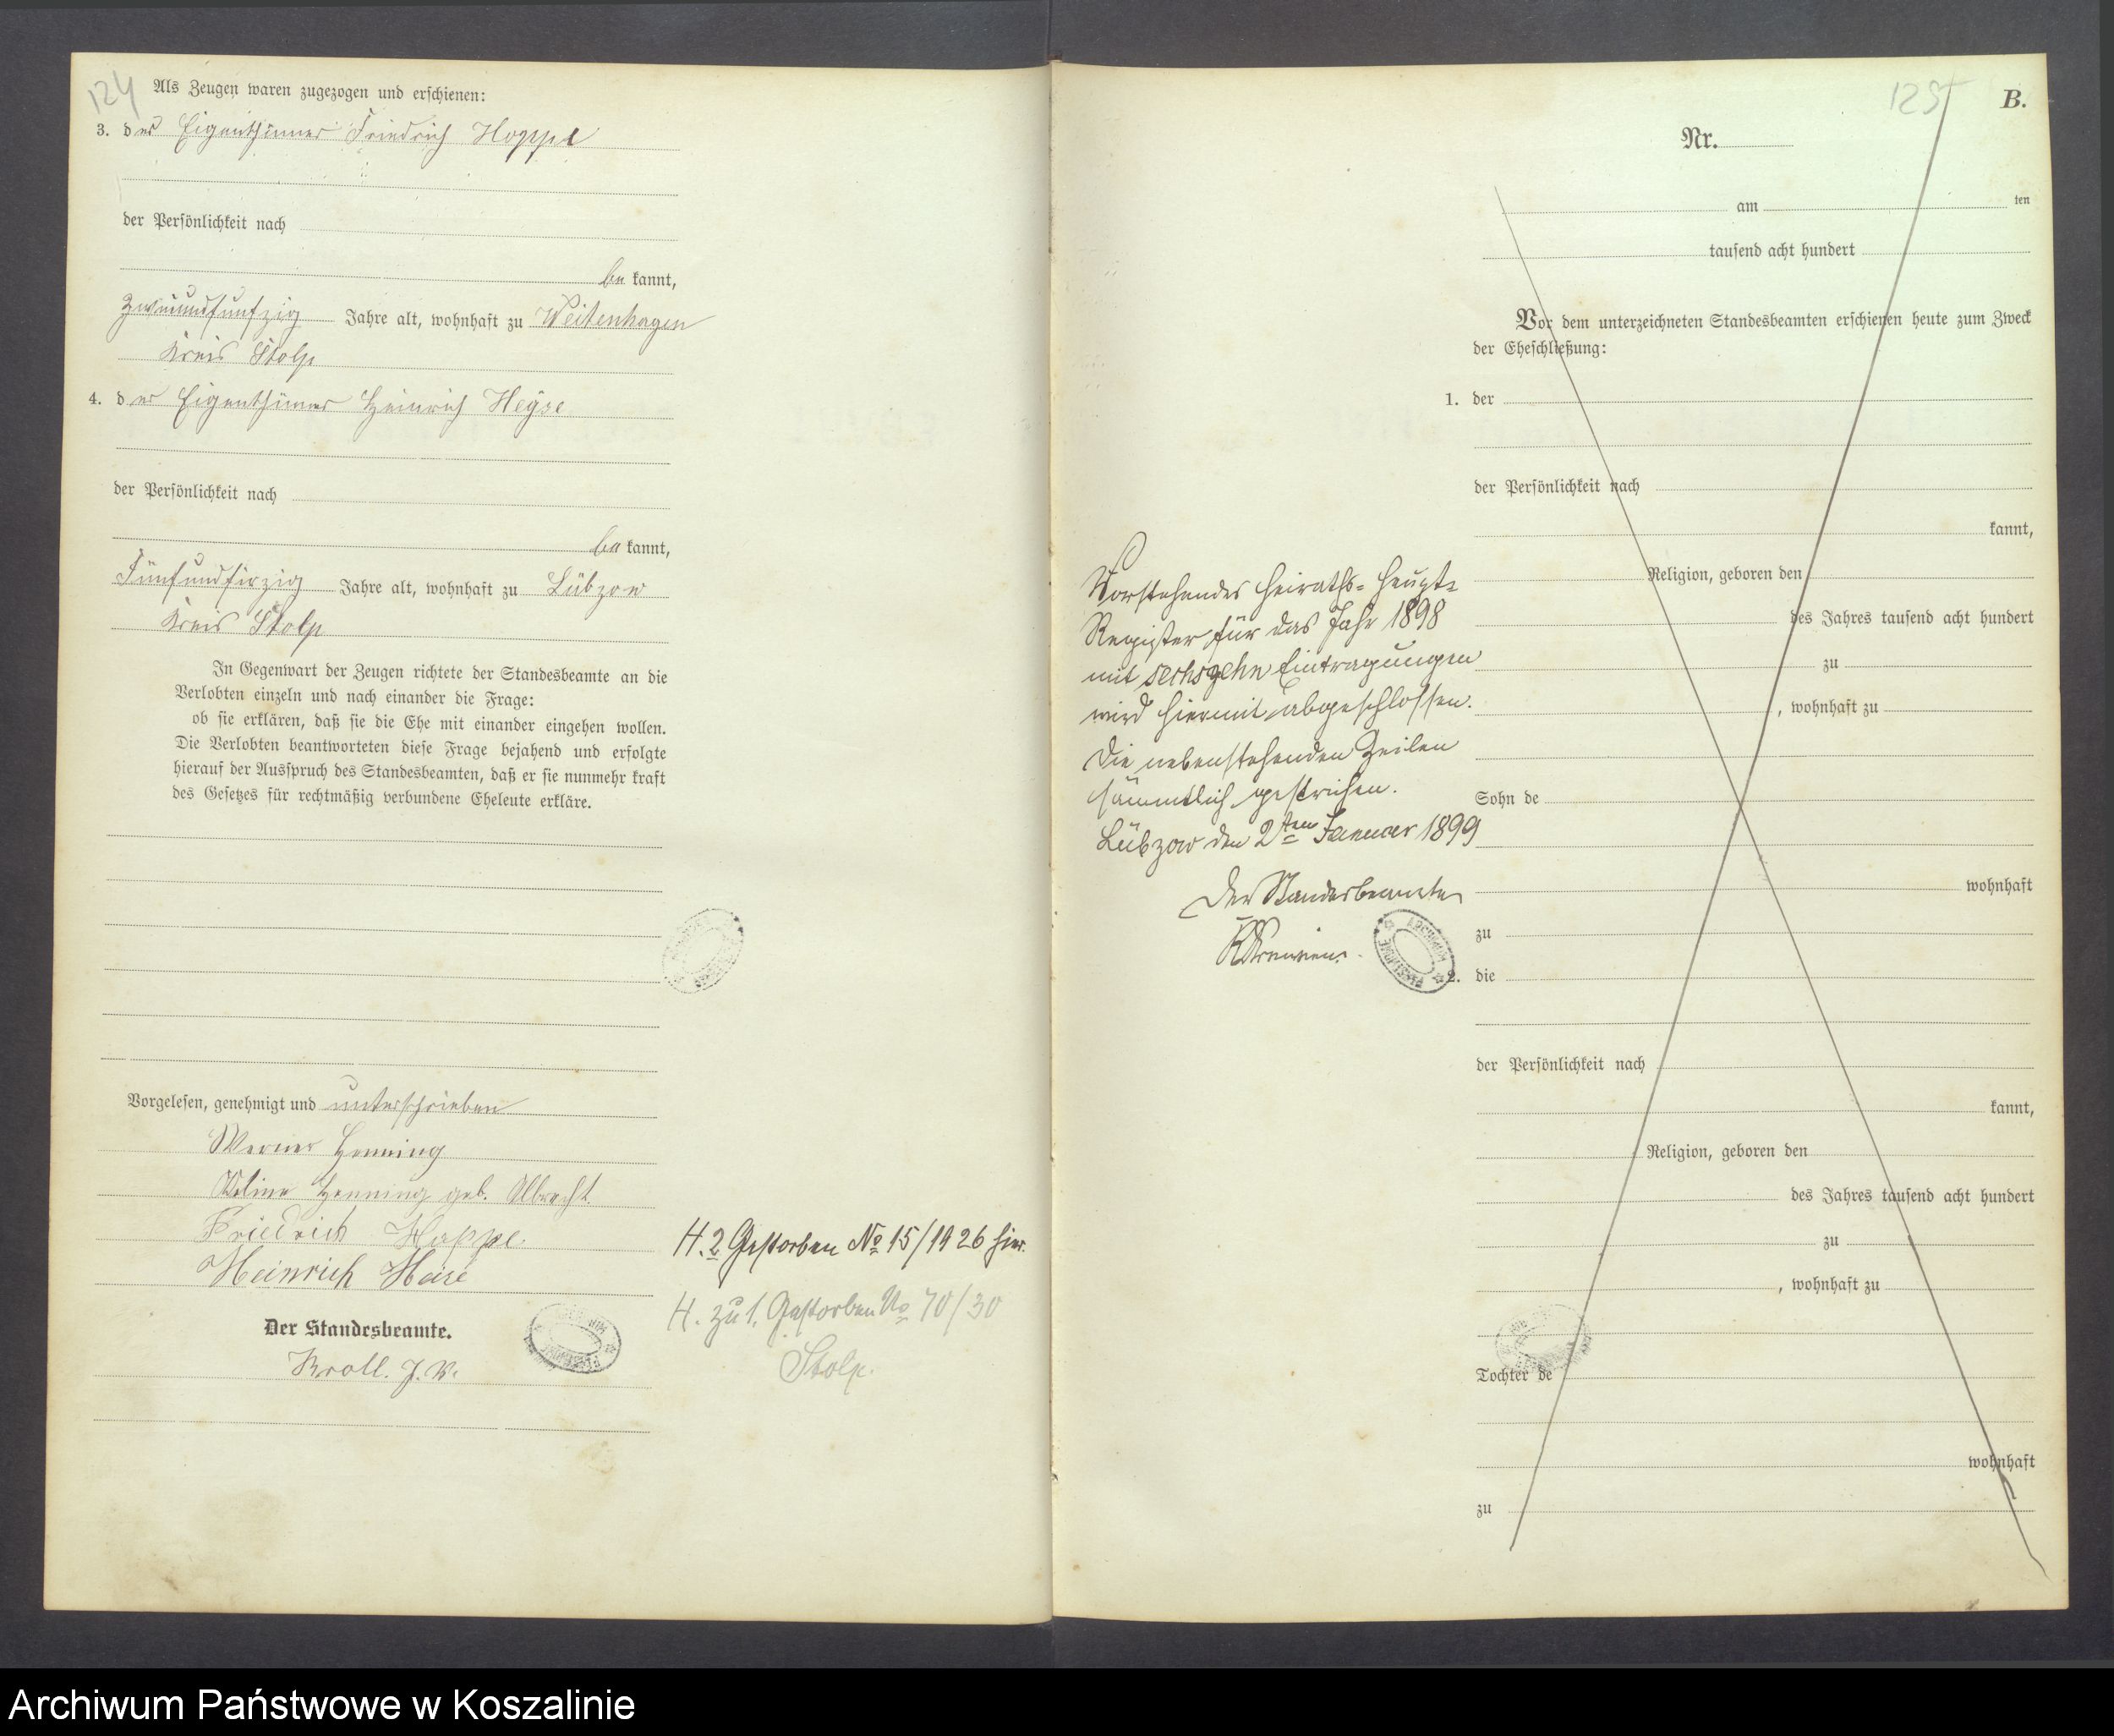 124
Als Zeugen waren zugezogen und erschienen:
3. der Eigenthümer Friedrich Hoppe
der Persönlichkeit nach
be kannt,
zweiundfünfzig Jahre alt, wohnhaft zu Weitenhagen
Kreis Stolp
4. der Eigenthümer Heinrich Heyse
der Persönlichkeit nach
be kannt,
Fünfundfirzig Jahre alt, wohnhaft zu Lübzow
Kreis Stolp
In Gegenwart der Zeugen richtete der Standesbeamte an die
Verlobten einzeln und nach einander die Frage:
ob sie erklären, daß sie die Ehe mit einander eingehen wollen.
Die Verlobten beantworteten diese Frage bejahend und erfolgte
hierauf der Ausspruch des Standesbeamten, daß er sie nunmehr kraft
des Gesetzes für rechtmäßig verbundene Eheleute erkläre.
Vorgelesen, genehmigt und unterschrieben
Werner Henning
Henning geb. Albrecht.
Friedrich Hoppe
Heinrich Heise
Der Standesbeamte.
Kroll. J. V.
H. 2 Gestorben No 15/1926 hier.
H. zu 1. Gestorben No 70/30
Stolp.
125
B.
Nr.
am ten
tausend acht hundert
Vor dem unterzeichneten Standesbeamten erschienen heute zum Zweck
der Eheschließung:
1. der
der Persönlichkeit nach
kannt,
Religion, geboren den
des Jahres tausend acht hundert
zu
, wohnhaft zu
Sohn de
wohnhaft
zu
2. die
der Persönlichkeit nach
kannt,
Religion, geboren den
des Jahres tausend acht hundert
zu
, wohnhaft zu
Tochter de
wohnhaft
zu
Vorstehendes Heiraths-Haupt-
Register für das Jahr 1898
mit sechszehn Eintragungen
wird hiermit abgeschlossen.
Die nebenstehenden Zeilen
sämmtlich gestrichen.
Lübzow den 2ten Januar 1899
Der Standesbeamte
Archiwum Państwowe w Koszalinie